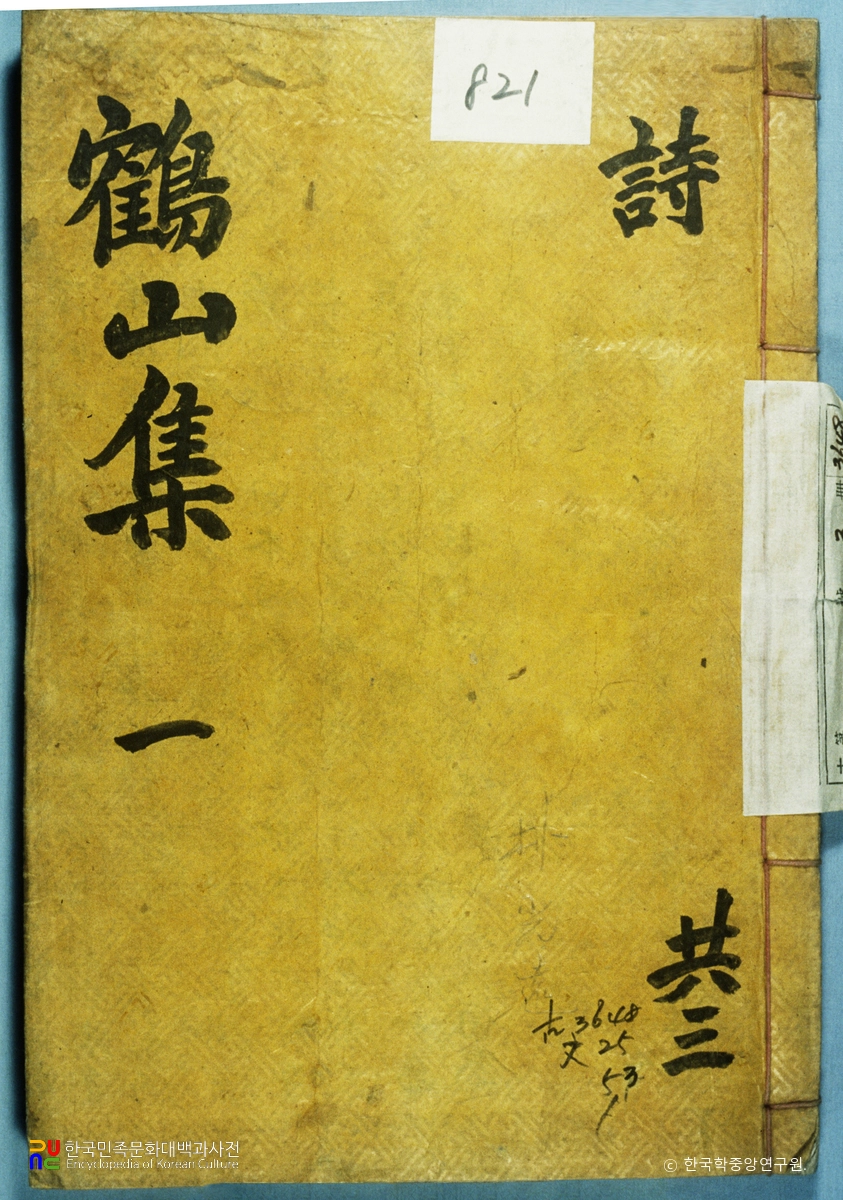 821
詩
鶴山集
一
共三
古 3648
文 25
53
1
3648
한국민족문화대백과사전
Encyclopedia of Korean Culture
ⓒ 한국학중앙연구원